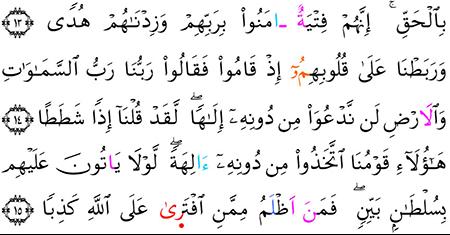 بِالْحَقِّ ۚ إِنَّهُمْ فِتْيَةٌ ـامَنُوا۟ بِرَبِّهِمْ وَزِدْنَـٰهُمْ هُدًى ١٣
وَرَبَطْنَا عَلَىٰ قُلُوبِهِمُۥٓ إِذْ قَامُوا۟ فَقَالُوا۟ رَبُّنَا رَبُّ السَّمَـٰوَٰتِ
وَالَارْضِ لَن نَّدْعُوَا۟ مِن دُونِهِۦٓ إِلَـٰهًا ۖ لَّقَدْ قُلْنَآ إِذًا شَطَطًا ١٤
هَـٰٓؤُلَآءِ قَوْمُنَا اتَّخَذُوا۟ مِن دُونِهِۦٓ ءَالِهَةً ۖ لَّوْلَا يَاتُونَ عَلَيْهِم
بِسُلْطَـٰنٍۭ بَيِّنٍ ۖ فَمَنَ اَظْلَمُ مِمَّنِ افْتَرِىٰ عَلَى اللَّهِ كَذِبًا ١٥